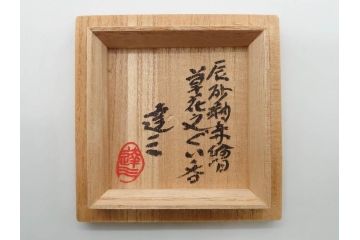 辰砂釉赤繪
草花文ぐい呑
達三